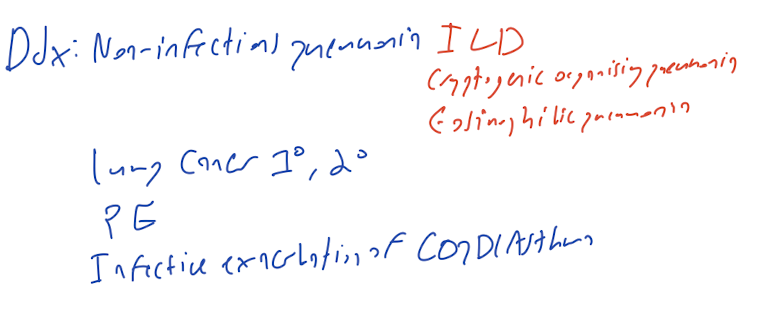 Ddx: Non-infectious pneumonia ILD
Cryptogenic organising pneumonia
Eosinophilic pneumonia
lung cancer 1°, 2°
PE
Infective exacerbation of COPD/Asthma